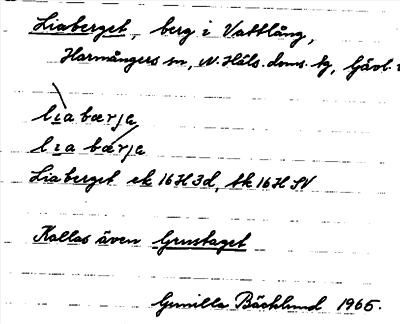 Liaberget, berg i Vattlång,
Harmångers sn, N. Häls. doms. tg, Gävl.
lıa bærja
lıa bærja
Liaberget ek 16H3d, tk 16H SV
Kallas även Grustaget
Gunilla Bäcklund 1965.